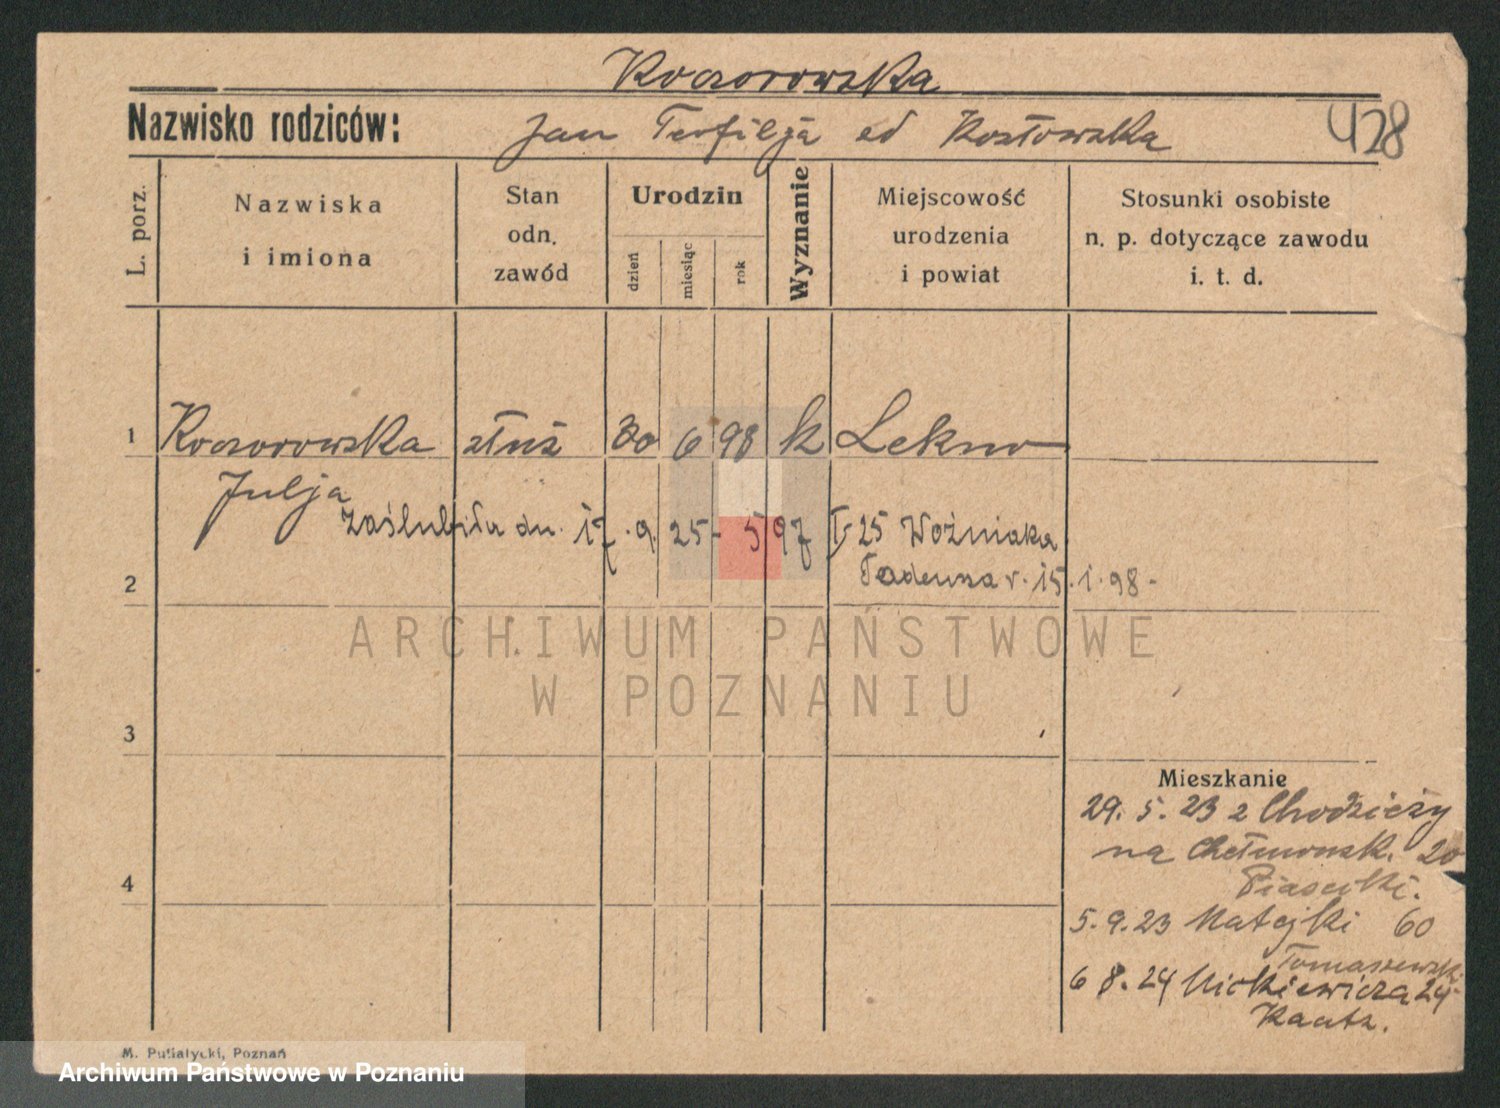 Koczorowska
Nazwisko rodziców: Jan Teofilja od Kozłowska
428
L. porz.
Nazwiska
i imiona
Stan
odn.
zawód
Urodzin
dzień
miesiąc
rok
Wyznanie
Miejscowość
urodzenia
i powiat
Stosunki osobiste
n. p. dotyczące zawodu
i. t. d.
1 Koczorowska służ 30 6 98 k Lekno
Julja
zaślubiła dn. 17.9.25 - 597 25 Woźniaka
2 Tadeusza r. 15.1.98 -
ARCHIWUM PAŃSTWOWE
W POZNANIU
3
Mieszkanie
29. 5. 23 z Chodzieży
na Chełmonsk. 20
4
5.9.23 Matejki 60
Tomaszewsk.
6 8. 24 Mickiewicza 24
Kaatz.
M. Putiatycki, Poznań
Archiwum Państwowe w Poznaniu